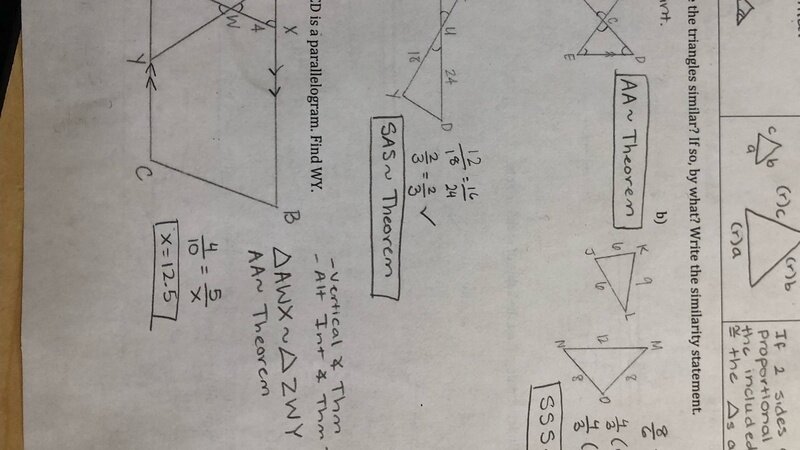 If 2 sides
proportional
the included
≅ the Δs a
c
b
a
(r)c
(r)b
(r)a
e the triangles similar? If so, by what? Write the similarity statement.
C
D
E
AA~ Theorem
b)
K
6
9
J
6
L
M
12
8
N
8
O
8/6
4/3
4/3
SSS
U
24
18
Y
D
12/18 = 16/24
2/3 = 2/3 ✓
SAS~ Theorem
CD is a parallelogram. Find WY.
X
4
W
Y
B
C
- Vertical ∡ Thm
- Alt Int ∡ Thm
ΔAWX ~ ΔZWY
AA~ Theorem
4/10 = 5/x
x = 12.5